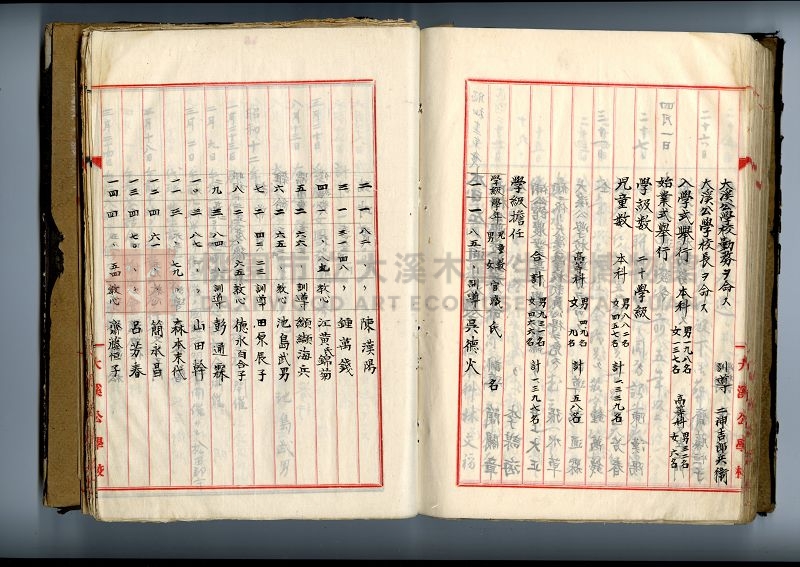 大溪公學校勤務ヲ命ス
大溪公學校長ヲ命ス 訓導 二神吉郎兵衛
入學式舉行 本科 男一九八名 女一三七名 高等科 男三二名 女六名
四月一日 始業式舉行
學級數 二十學級
兒童數 本科 男八八二名 女四五七名 計一三三九名
高等科 男四九名 女九名 計五八名
合計 男九三一名 女四六六名 計一三九七名
學級擔任
學級 學年 兒童數 男 女 官職 氏名
一 一 八五 訓導 吳德火
二 一 八二 〃 陳漢陽
三 一 三一 四八 〃 鍾萬錢
四 一 〃 八九 教心 江黃氏錦菊
五 二 六六 訓導 纐纈海兵
六 二 六五 教心 池島武男
七 二 四三 二三 訓導 田原辰子
八 二 〃 六五 教心 德永百合子
九 三 八四 訓導 彭通霖
一〇 三 八七 〃 山田幹
一一 三 〃 七九 〃 森本末代
一二 四 六一 〃 簡永昌
一三 四 七〇 〃 呂芳春
一四 四 〃 五四 教心 齋藤恒子
大溪公學校
大溪公學校